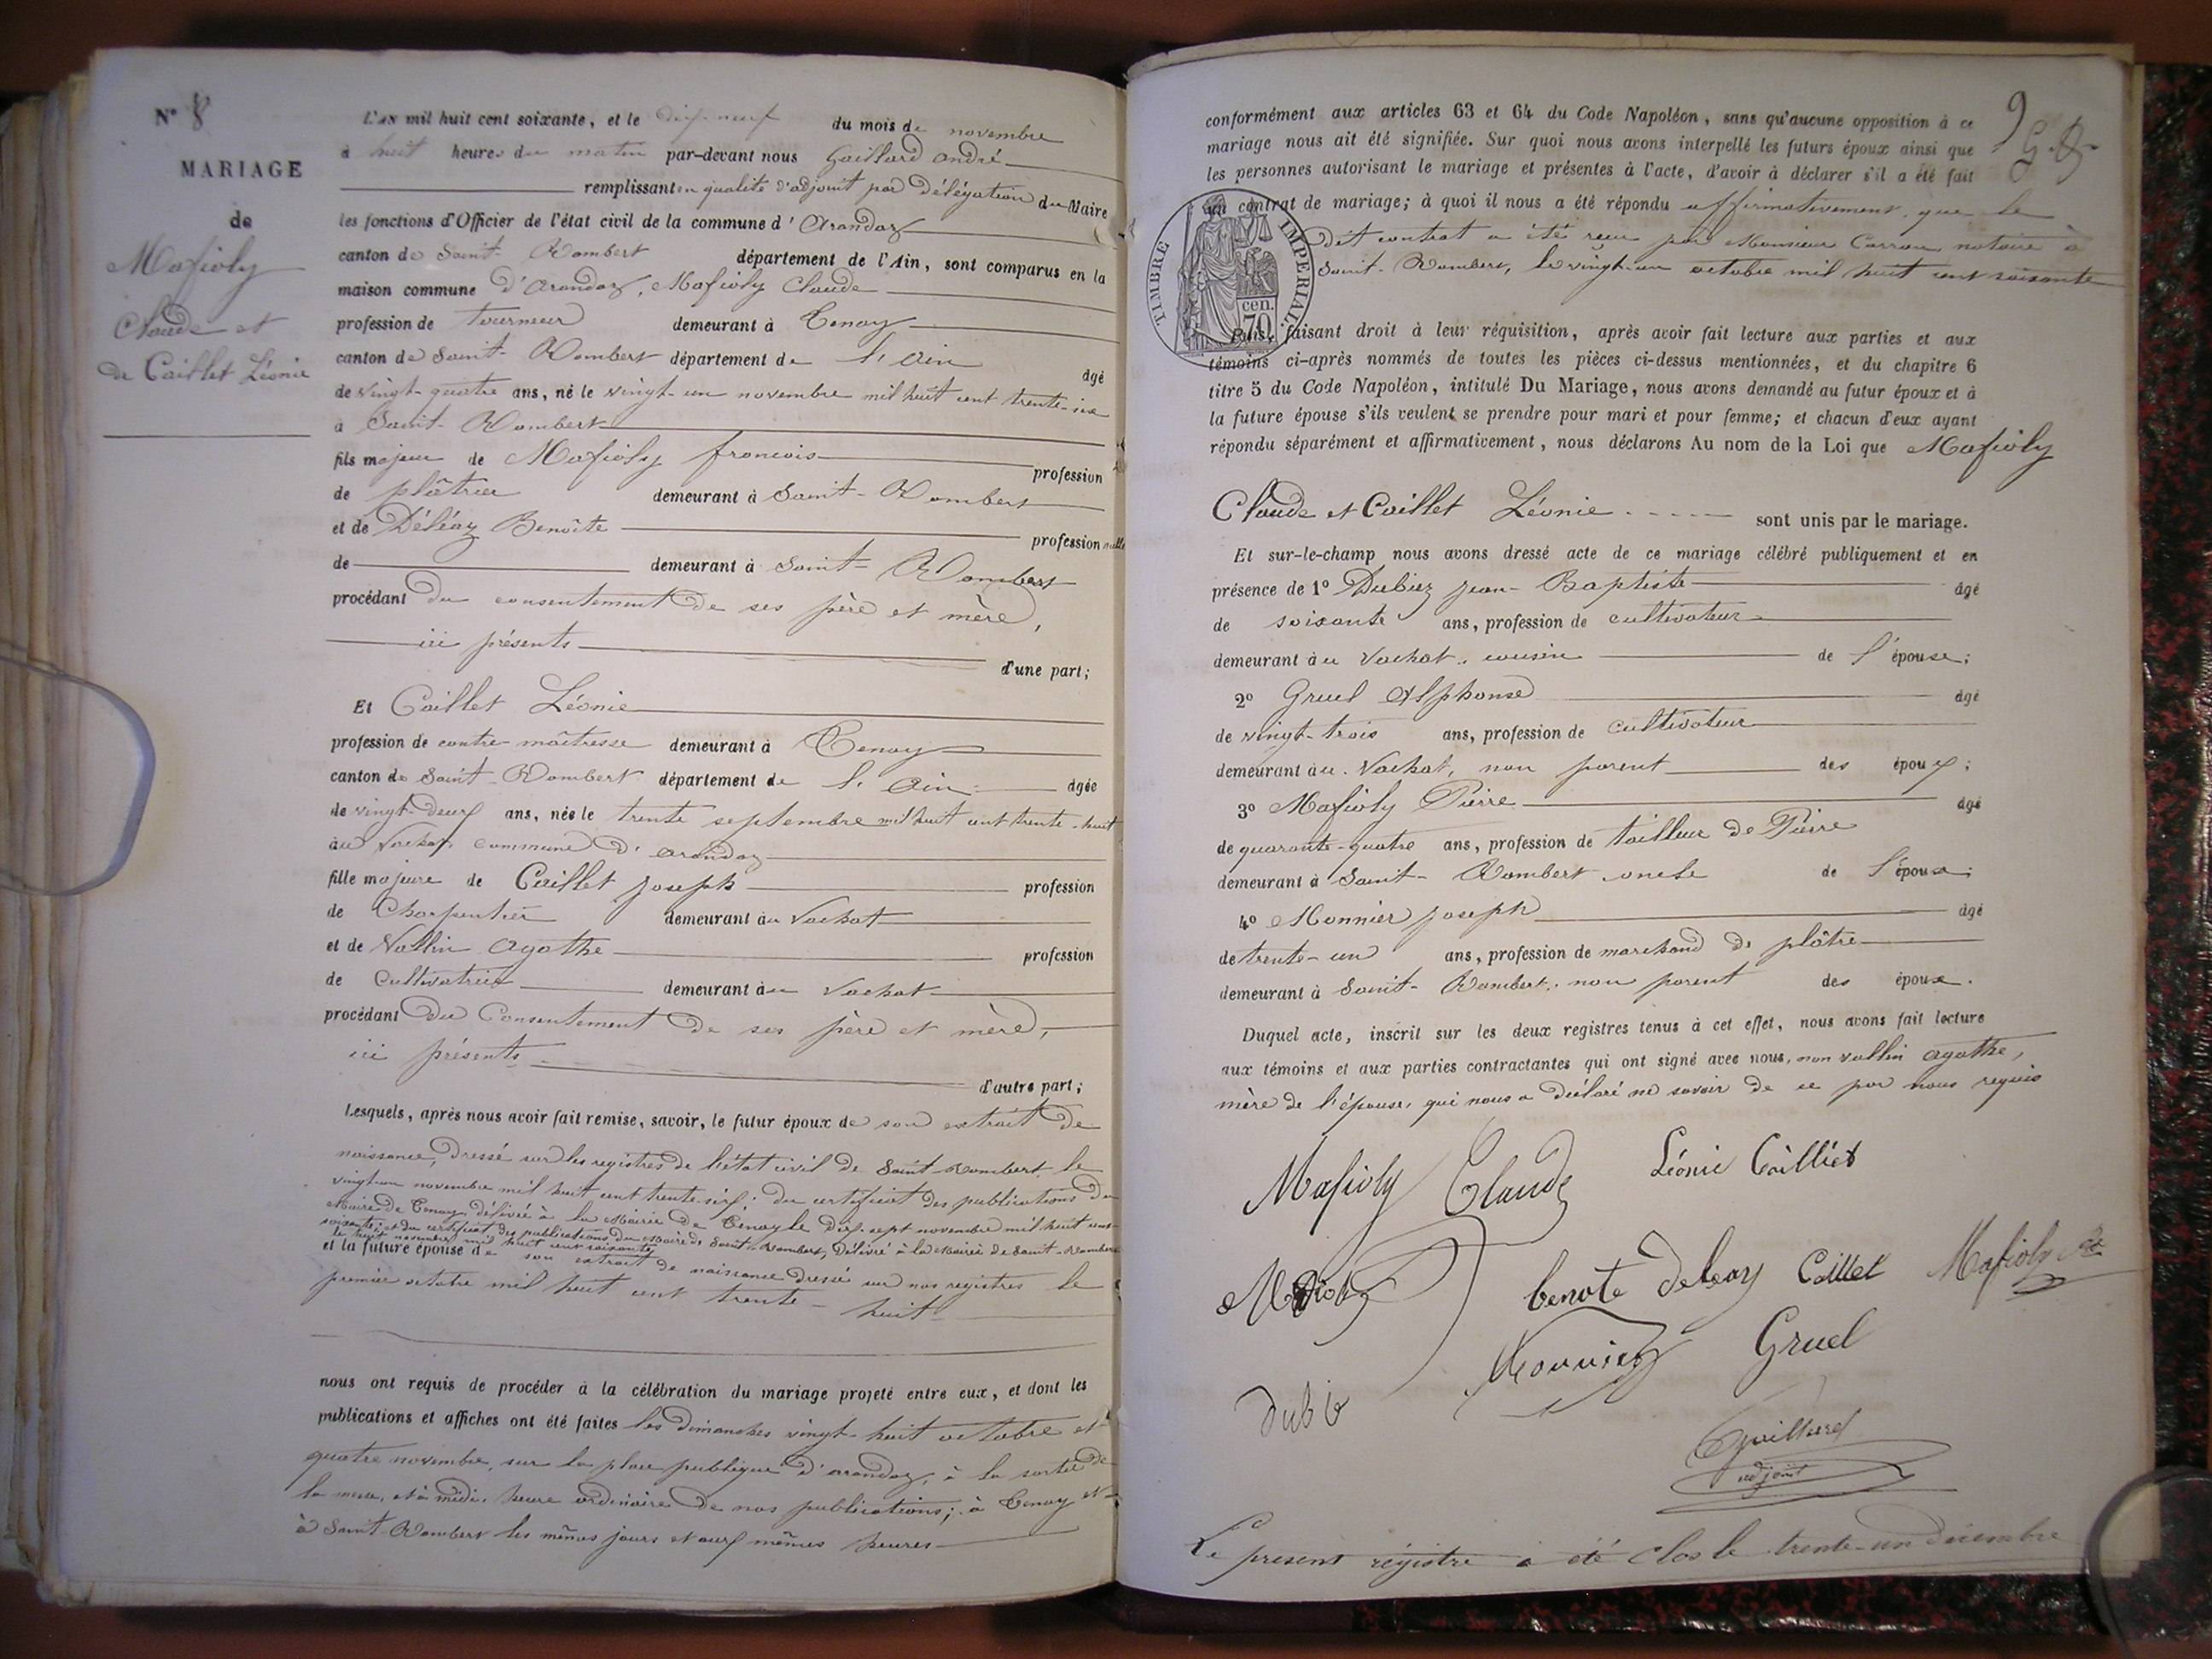 N° 8
MARIAGE
de
Mafioly
Claude et
de Caillet Léonie
L'AN mil huit cent soixante, et le dix-neuf du mois de novembre
à huit heures du matin par-devant nous Gaillard andré
remplissant en qualité d'adjoint par délégation du Maire
les fonctions d'Officier de l'état civil de la commune d'Arandaz
canton de Saint-Rambert département de l'Ain, sont comparus en la
maison commune d'Arandaz, Mafioly Claude
profession de tourneur demeurant à Tenay
canton de Saint-Rambert département de l'ain âgé
de vingt-quatre ans, né le vingt-un novembre mil huit cent trente-six
à Saint-Rambert
fils majeur de Mafioly francois profession
de plâtrier demeurant à Saint-Rambert
et de Déléaz Benoîte profession nulle
de demeurant à Saint-Rambert
procédant du consentement de ses père et mère,
ici présents d'une part;
Et Caillet Léonie
profession de contre-maîtresse demeurant à Tenay
canton de Saint-Rambert département de l'Ain âgée
de vingt-deux ans, née le trente septembre mil huit cent trente-huit
au Vachat commune d'arandaz
fille majeure de Caillet joseph profession
de Charpentier demeurant au Vachat
et de Vallin agathe profession
de Cultivatrice demeurant au Vachat
procédant du Consentement de ses père et mère,
ici présents d'autre part;
Lesquels, après nous avoir fait remise, savoir, le futur époux de son extrait de
naissance, dressé sur les registres de l'état civil de Saint-Rambert le
vingt-un novembre mil huit cent trente-six; du certificat des publications du
Maire de Tenay, délivré à la Mairie de Tenay le dix-sept novembre mil huit cent
soixante; et du certificat des publications du Maire de Saint-Rambert, délivré à la Mairie de Saint-Rambert
le huit novembre mil huit cent soixante
et la future épouse de son extrait de naissance dressé sur nos registres le
premier octobre mil huit cent trente-huit
nous ont requis de procéder à la célébration du mariage projeté entre eux, et dont les
publications et affiches ont été faites les dimanches vingt-huit octobre et
quatre novembre, sur la place publique d'arandaz, à la sortie de
la messe, et à midi, heure ordinaire de nos publications; à Tenay et
à Saint-Rambert les mêmes jours et aux mêmes heures
9
conformément aux articles 63 et 64 du Code Napoléon, sans qu'aucune opposition à ce
mariage nous ait été signifiée. Sur quoi nous avons interpellé les futurs époux ainsi que
les personnes autorisant le mariage et présentes à l'acte, d'avoir à déclarer s'il a été fait
un contrat de mariage; à quoi il nous a été répondu affirmativement, que le
dit contrat a été reçu par Monsieur Carrau notaire à
Saint-Rambert, le vingt-un octobre mil huit cent soixante
TIMBRE IMPERIAL
70 cen.
Puis, faisant droit à leur réquisition, après avoir fait lecture aux parties et aux
témoins ci-après nommés de toutes les pièces ci-dessus mentionnées, et du chapitre 6
titre 5 du Code Napoléon, intitulé Du Mariage, nous avons demandé au futur époux et à
la future épouse s'ils veulent se prendre pour mari et pour femme; et chacun d'eux ayant
répondu séparément et affirmativement, nous déclarons Au nom de la Loi que Mafioly
Claude et Caillet Léonie sont unis par le mariage.
Et sur-le-champ nous avons dressé acte de ce mariage célébré publiquement et en
présence de 1° Dubiez jean-Baptiste âgé
de soixante ans, profession de cultivateur
demeurant au Vachat, cousin de l'épouse;
2° Gruel Alphonse âgé
de vingt-trois ans, profession de cultivateur
demeurant au Vachat, non parent des époux;
3° Mafioly Pierre âgé
de quarante-quatre ans, profession de tailleur de Pierre
demeurant à Saint-Rambert oncle de l'époux;
4° Monnier joseph âgé
de trente-un ans, profession de marchand de plâtre
demeurant à Saint-Rambert, non parent des époux.
Duquel acte, inscrit sur les deux registres tenus à cet effet, nous avons fait lecture
aux témoins et aux parties contractantes qui ont signé avec nous, non vallin agathe,
mère de l'épouse, qui nous a déclaré ne savoir de ce par nous requis
Mafioly Claude Léonie Cailliet
benote deleay Caillet Mafioly
Monnier Gruel
Dubie
Gaillard
adjoint
Le present régistre a été clos le trente-un decembre